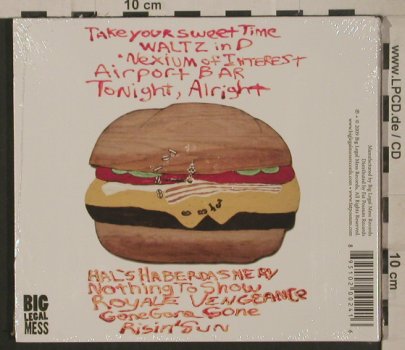 10 cm
TAKE YOUR SWEET TIME
WALTZ in D
NEXIUM of INTEREST
AIRPORT BAR
TONIGHT, ALRIGHT
HAL'S HABERDASHERY
NOTHING TO SHOW
ROYALE VENGEANCE
Gone Gone Gone
RISIN' SUN
BIG
LEGAL
MESS
Manufactured by Big Legal Mess Records
Distributed by Fat Possum Records
℗ + © 2009 Big Legal Mess Records, All Rights Reserved.
www.LPCD.de / CD
10 cm